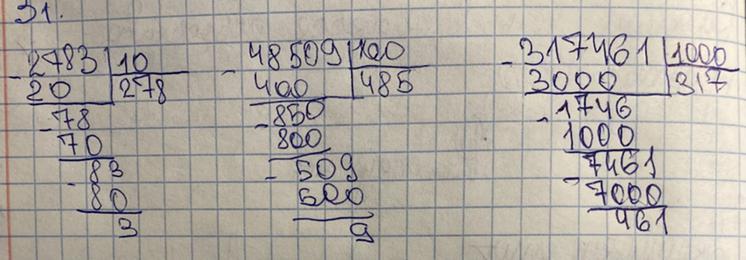 31.
-2783 | 10
20 | 278
-78
70
-83
80
3
-48509 | 100
400 | 485
-850
800
-509
500
9
-317461 | 1000
3000 | 317
-1746
1000
-7461
7000
461